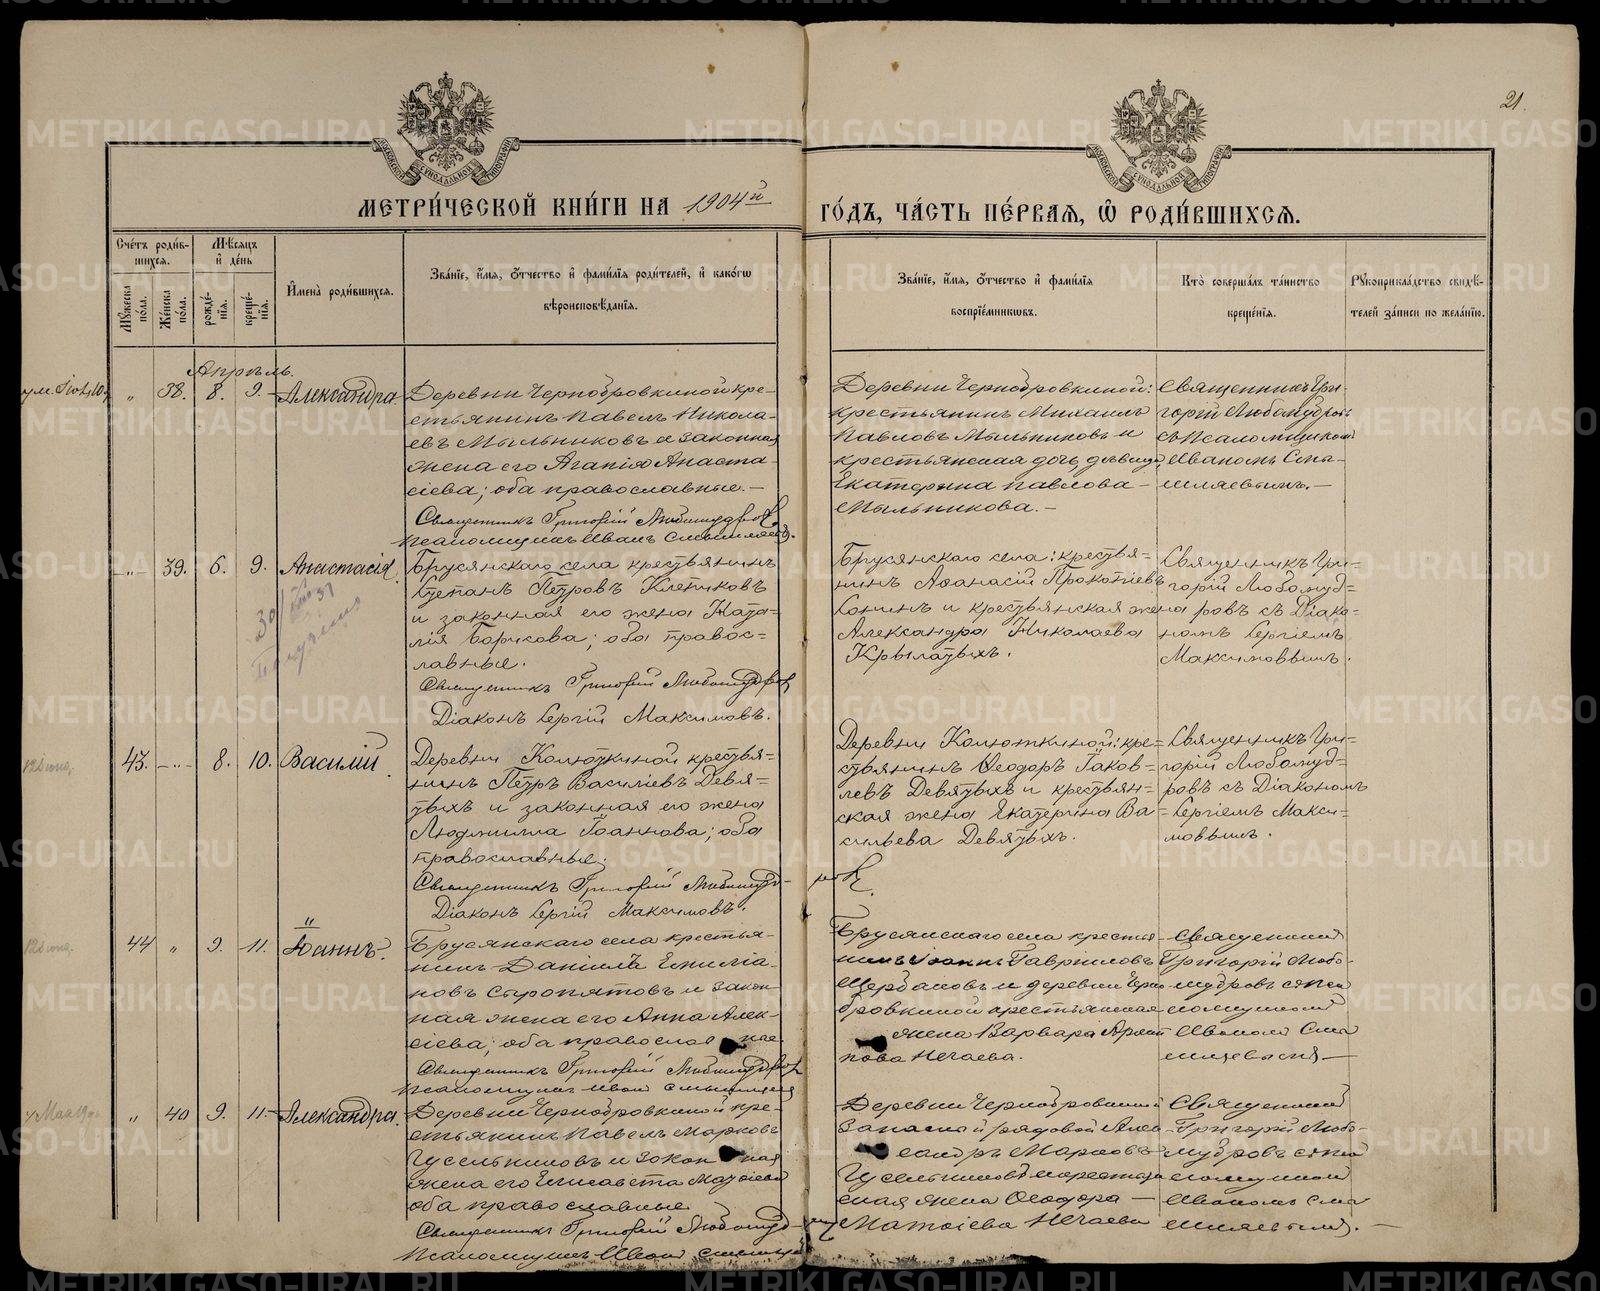 21.
МЕТРИ́ЧЕСКОЙ КНИ́ГИ НА 1904й
ГО́ДЪ, ЧА́СТЬ ПЕ́РВАЯ, Ѽ РОДИ́ВШИХСЯ.
Сче́тъ роди́в-
шихся.
Мꙋ́жеска по́ла.
Же́нска по́ла.
Мѣ́сяцъ
и҆ де́нь
рожде́-
нїя.
креще́-
нїя.
И҆мена̀ роди́вшихся.
Зва́нїе, и҆́мя, ѻ҆́тчество и҆ фами́лїя роди́телей, и҆ како́гѡ
вѣроисповѣ́данїя.
Зва́нїе, и҆́мя, ѻ҆́тчество и҆ фами́лїя
воспрїе́мникѡвъ.
Кто̀ соверша́лъ та́инство
креще́нїя.
Рꙋкоприкла́дство свидѣ́-
телей за́писи по жела́нїю.
Апрѣль.
„ 38. 8. 9. Александра
Деревни Чернобровкиной кре-
стьянинъ Павелъ Никола-
евъ Мыльниковъ и законная
жена его Агапія Анаста-
сіева; оба православные. —
Священникъ Григорій Любомудровъ
Псаломщикъ Иванъ Смышляевъ.
Деревни Чернобровкиной:
крестьянинъ Михаилъ
Павловъ Мыльниковъ и
крестьянская дочь, дѣвица
Екатерина Павлова —
Мыльникова. —
Священникъ Гри-
горій Любомудровъ
съ Псаломщикомъ
Иваномъ Смы-
шляевымъ. —
„ 39. 6. 9. Анастасія.
Брусянскаго села крестьянинъ
Степанъ Петровъ Клепиковъ
и законная его жена Ната-
лія Борисова; оба правос-
лавные.
Священникъ Григорій Любомудровъ
Діаконъ Сергій Максимовъ.
Брусянскаго села: крестья-
нинъ Аѳанасій Прокопіевъ
Сонинъ и крестьянская жена
Александра Николаева
Крылатыхъ.
Священникъ Гри-
горій Любомуд-
ровъ съ Діако-
номъ Сергіемъ
Максимовымъ.
43. „ 8. 10. Василій.
Деревни Колюткиной крестья-
нинъ Петръ Василіевъ Девя-
тыхъ и законная его жена
Людмилла Іоаннова; оба
православные.
Священникъ Григорій Любомуд-
ровъ.
Діаконъ Сергій Максимовъ.
Деревни Колюткиной: кре-
стьянинъ Ѳеодоръ Іаков-
левъ Девятыхъ и крестьян-
ская жена Екатерина Ва-
сильева Девятыхъ.
Священникъ Гри-
горій Любомуд-
ровъ съ Діакономъ
Сергіемъ Макси-
мовымъ.
44 „ 9. 11. Іоаннъ.
Брусянскаго села крестья-
нинъ Даніилъ Емиліа-
новъ Сыропятовъ и закон-
ная жена его Анна Алек-
сіева; оба православные.
Священникъ Григорій Любомудровъ
Псаломщикъ Иванъ Смышляевъ
Брусянскаго села крестья-
нинъ Іоаннъ Гавриловъ
Щербаковъ и деревни Черно-
бровкиной крестьянская
жена Варвара
Нечаева.
Священникъ
Григорій Любо-
мудровъ съ Пса-
ломщикомъ
Иваномъ Смы-
шляевымъ. —
„ 40 9. 11. Александра.
Деревни Чернобровкиной кре-
стьянинъ Павелъ Марковъ
Гусельниковъ и законная
жена его Елисавета Матѳіева
оба православные.
Священникъ Григорій Любомуд-
ровъ
Псаломщикъ Иванъ
Деревни Чернобровкиной
Запасной рядовой Алек-
сандръ Марковъ
Гусельниковъ и крестьян-
ская жена Ѳеодора —
Матѳіева Нечаева
Священникъ
Григорій Любо-
мудровъ съ Пса-
ломщикомъ
Иваномъ Смы-
шляевымъ. —